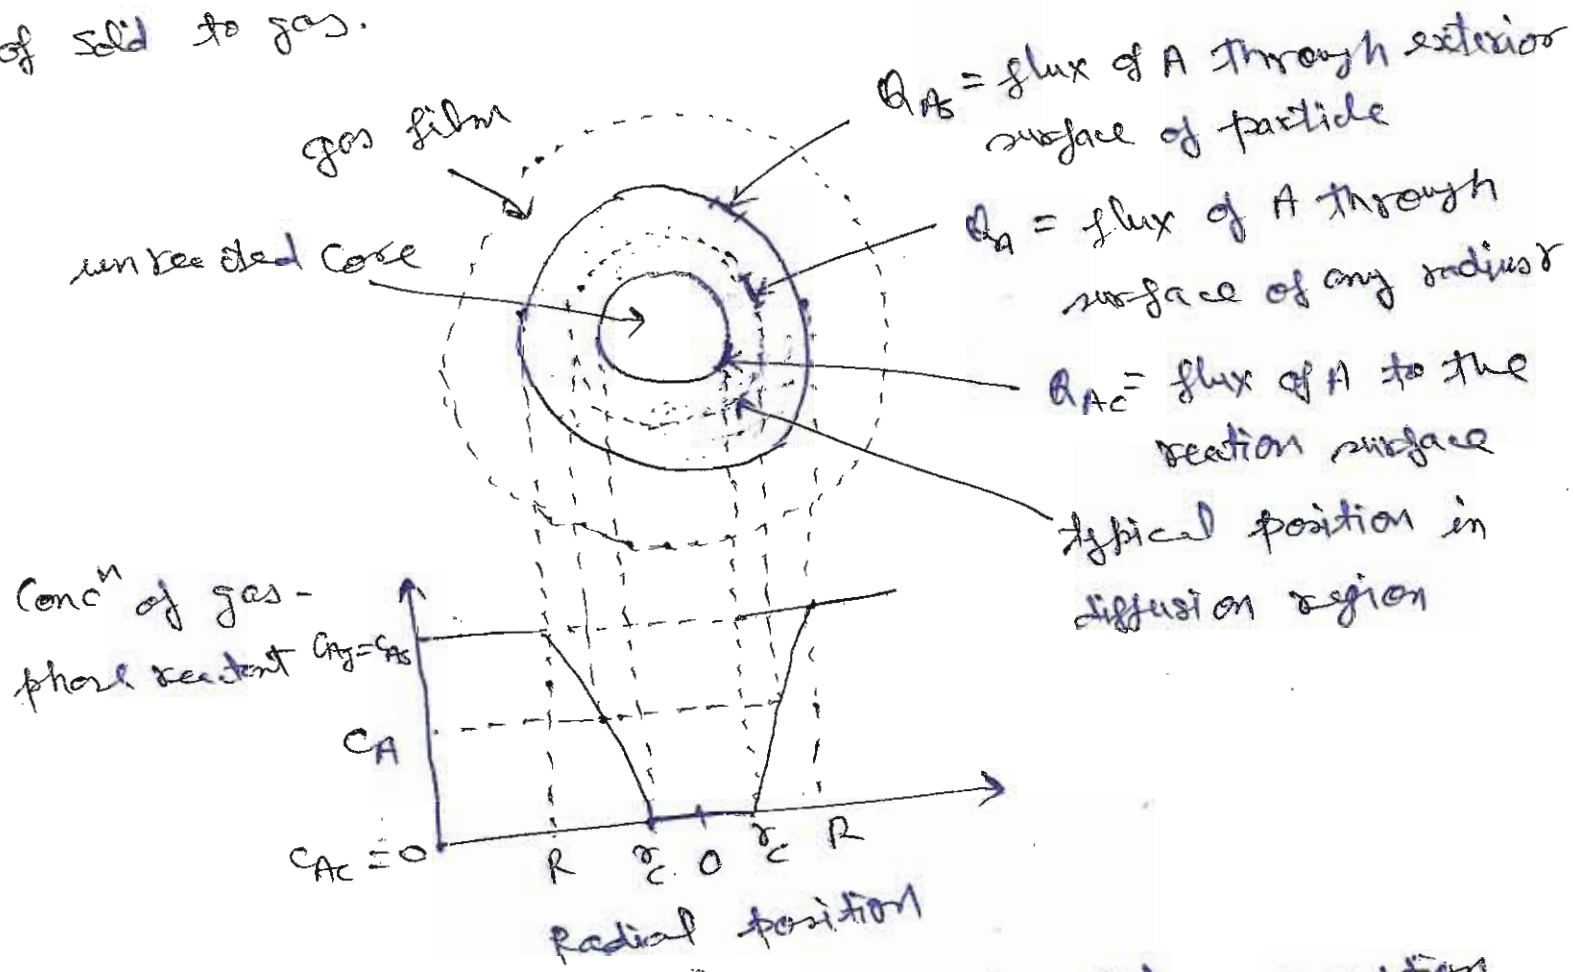 of solid to gas.
gas film
unreacted core
Q_As = flux of A through exterior
surface of particle
Q_A = flux of A through
surface of any radius r
Q_Ac = flux of A to the
reation surface
typical position in
diffusion region
Concⁿ of gas-
phase reactant C_Ag = C_As
C_A
C_Ac = 0
R r_c 0 r_c R
Radial position